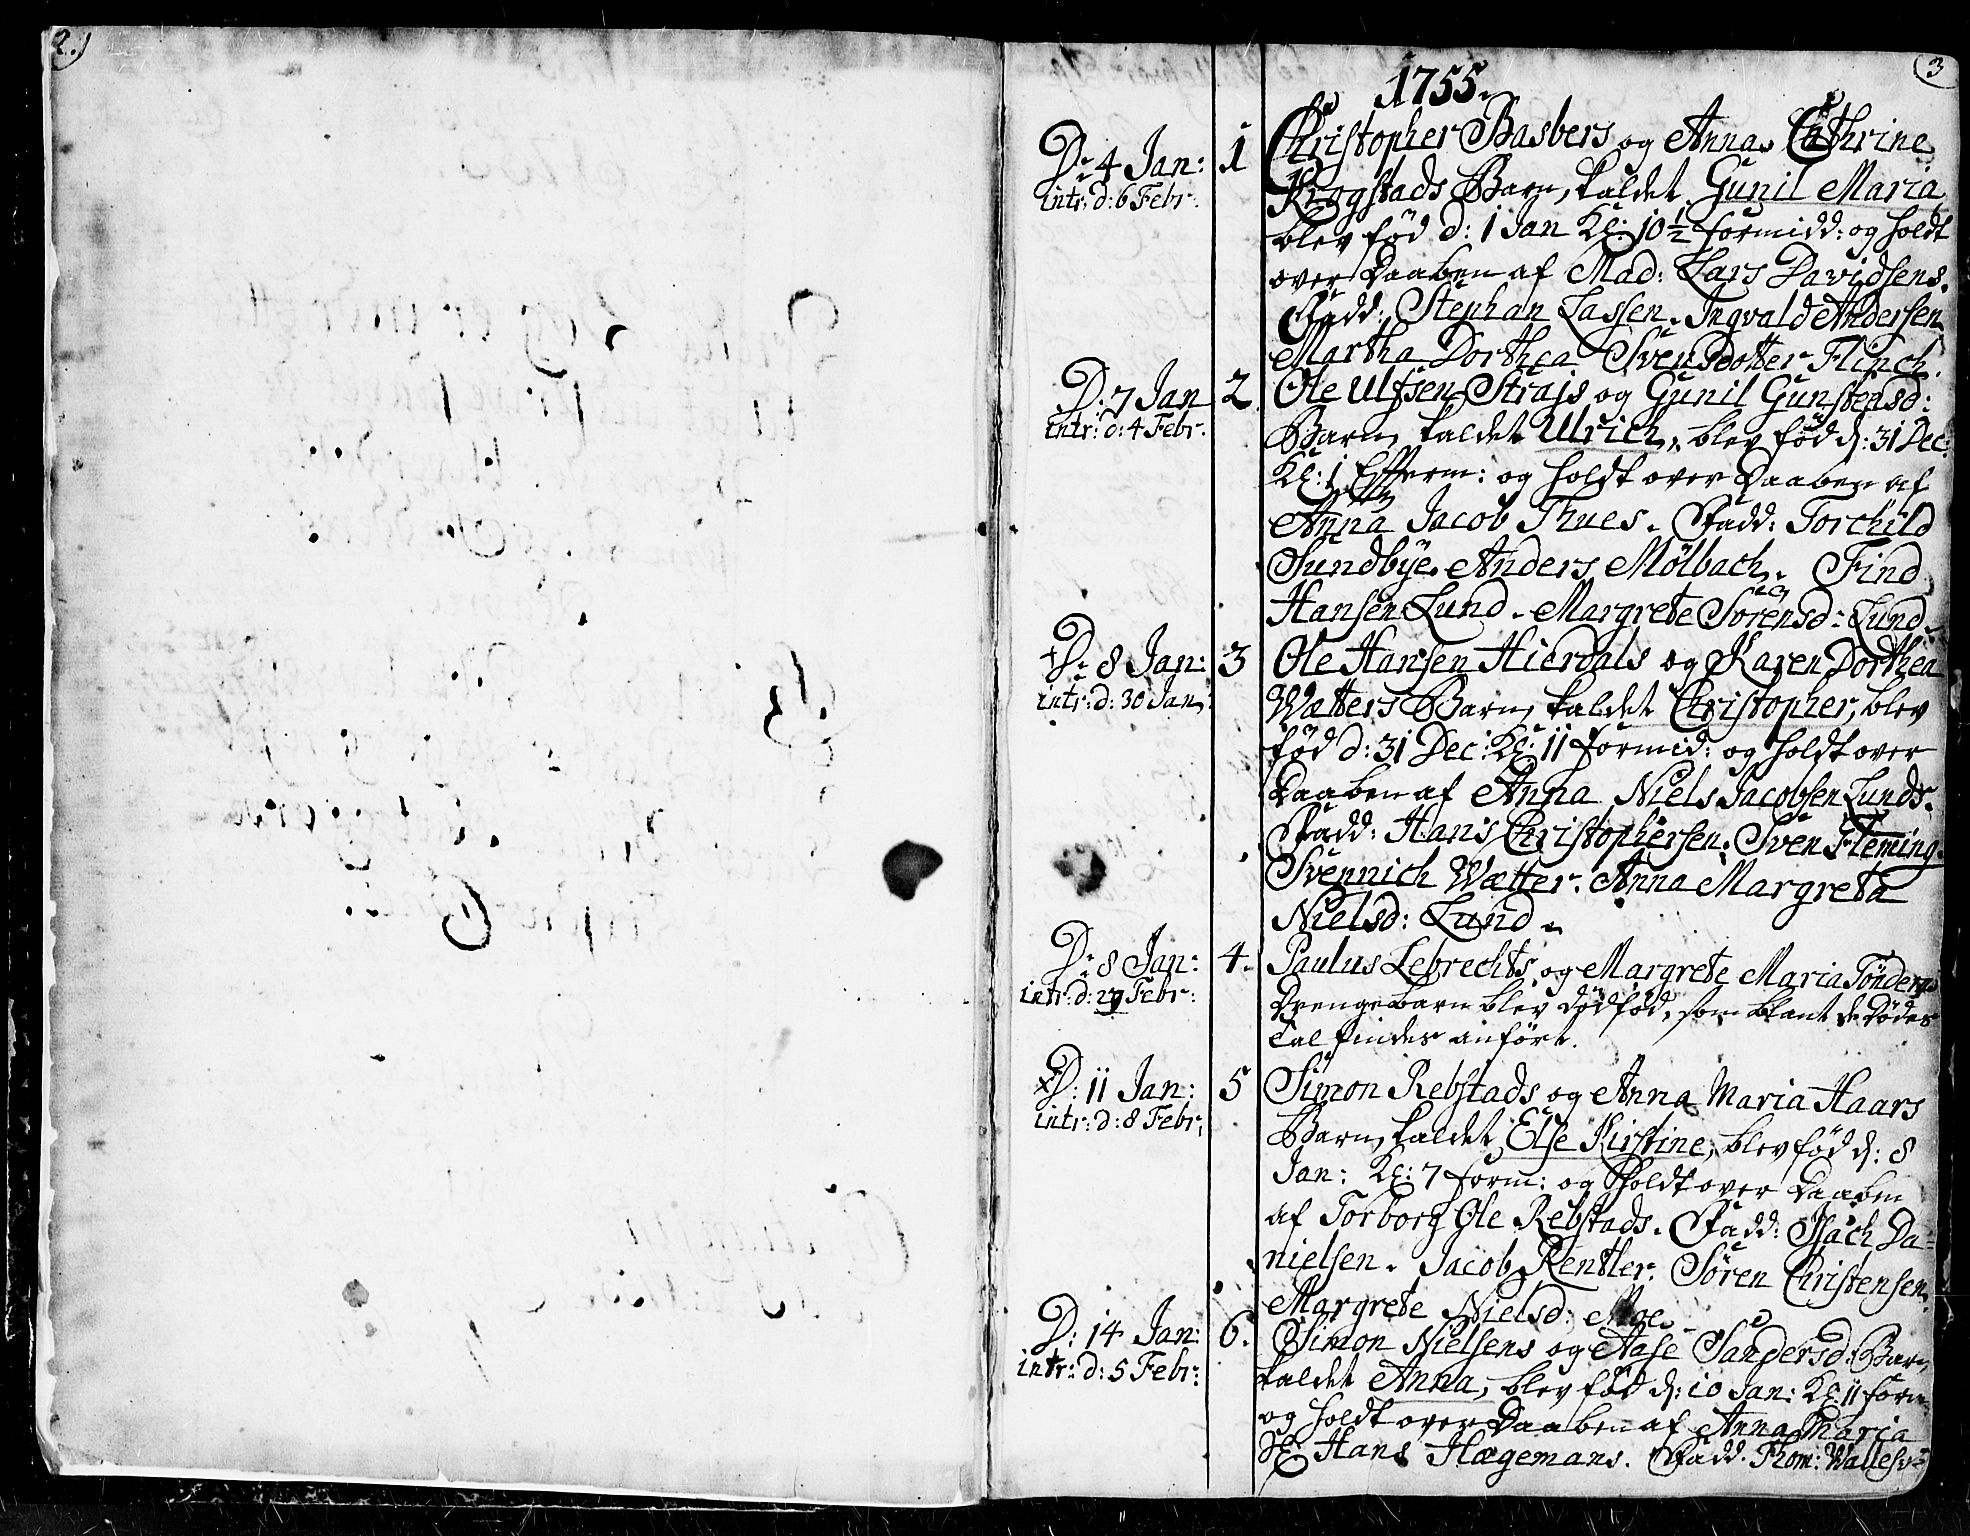 2.)
3
1755.
D: 4 Jan:
intr: d: 6 Febr:
1
Christopher Basbers og Anna Cathrine
Krogstads Barn, kaldet Gunil Maria,
blev fød d: 1 Jan Kl: 10 1/2 formidd: og holdt
over Daaben af Mad: Lars Davidsens.
Fadd: Stephan Lassen. Ingvald Andersen
Martha Dorthea Svensdotter Flinch.
D: 7 Jan
intr: d: 4 Febr:
2
Ole Ulfsen Strajs og Gunil Gunstensd:
Barn, kaldet Ulrich, blev fød d: 31 Dec:
Kl: 1 Efterm: og holdt over Daaben af
Anna Jacob Thues. Fadd: Torchild
Sundbye. Anders Mølbach. Find
Hansen Lund. Margrete Sørensd: Lund.
D: 8 Jan:
intr: d: 30 Jan:
3
Ole Hansen Hierdals og Karen Dorthea
Wætters Barn, kaldet Christopher, blev
fød d: 31 Dec: Kl: 11 formid: og holdt over
Daaben af Anna Niels Jacobsen Lunds.
Fadd: Hans Christophersen. Sven Fleming.
Svennich Wætter. Anna Margreta
Nielsd: Lund.
D: 8 Jan:
intr: d: 27 Febr:
4.
Paulus Lebrechts og Margrete Maria Tønders
Drengebarn blev dødfød, som blant de Dødes
Tal findes anført.
D: 11 Jan:
intr: d: 8 Febr:
5
Simon Rebstads og Anna Maria Haars
Barn, kaldet Else Kirstine, blev fød d: 8
Jan: Kl: 7 form: og holdt over Daaben
af Torborg Ole Rebstads. Fadd: Isach Da=
nielsen. Jacob Rentler. Søren Christensen.
Margrete Nielsd: Moe.
D: 14 Jan:
intr: d: 5 Febr:
6.
Simon Nielsens og Aase Sandersd: Barn,
kaldet Anna, blev fød d: 10 Jan: Kl: 11 form:
og holdt over Daaben af Anna Maria
Hans Hagemans. Fadd: Thom: